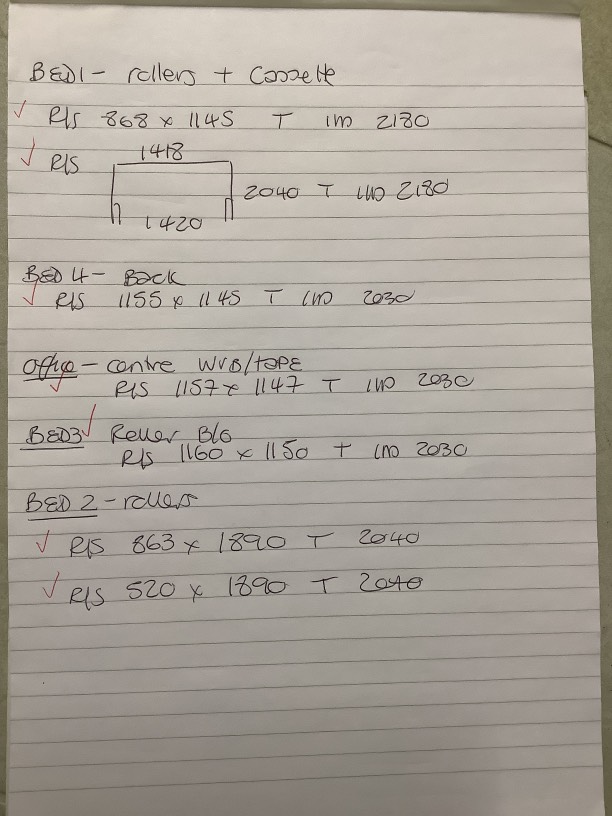 BED1 - rollers + Cassette
R/S 868 x 1145 T IND 2180
1418
R/S
2040 T IND 2180
1420
BED 4 - BACK
R/S 1155 x 1145 T IND 2030
Office - centre WVB/TAPE
R/S 1157 x 1147 T IND 2030
BED3 Roller B/O
R/S 1160 x 1150 T IND 2030
BED 2 - rollers
R/S 863 x 1890 T 2040
R/S 520 x 1890 T 2040